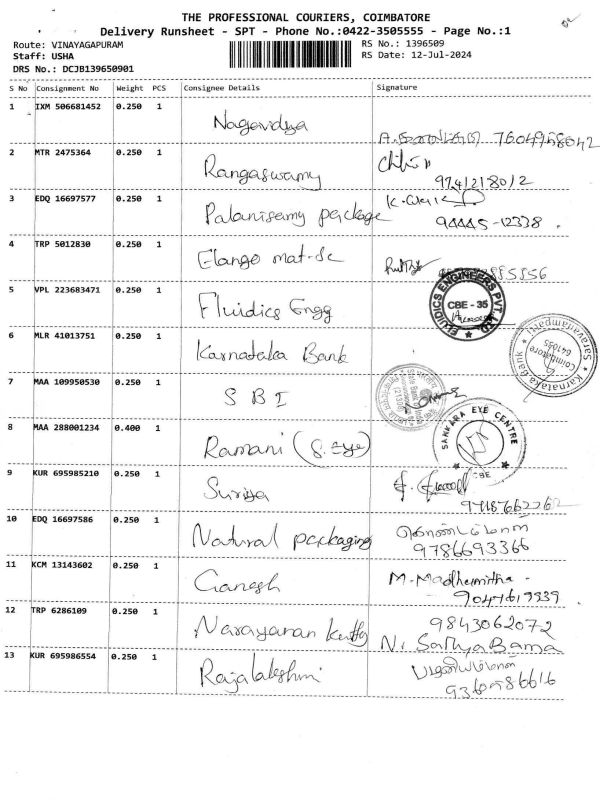 THE PROFESSIONAL COURIERS, COIMBATORE
Delivery Runsheet - SPT - Phone No.:0422-3505555 - Page No.:1
Route: VINAYAGAPURAM RS No.: 1396509
Staff: USHA RS Date: 12-Jul-2024
DRS No.: DCJB139650901
S No Consignment No Weight PCS Consignee Details Signature
1 IXM 506681452 0.250 1
Nagavidya 7604968042
2 MTR 2475364 0.250 1
Rangaswamy
9741218012
3 EDQ 16697577 0.250 1
Palanisamy package 94445-12338.
4 TRP 5012830 0.250 1
Elango mat-Sc
5 VPL 223683471 0.250 1
Fluidics Engg
FLUIDICS ENGINEERS PVT. LTD.
CBE - 35
6 MLR 41013751 0.250 1
Karnataka Bank
Karnataka Bank
Saravanampatti
Coimbatore
641035
7 MAA 109950530 0.250 1
S B I
8 MAA 288001234 0.400 1
Ramani (S. Eye)
SANKARA EYE CENTRE
CBE
9 KUR 695985210 0.250 1
Suriya
10 EDQ 16697586 0.250 1
Natural packaging 9786693366
11 KCM 13143602 0.250 1
Ganesh M. Madhumitha -
12 TRP 6286109 0.250 1
9843062072
Narayanan kutty N. Sathya Bama
13 KUR 695986554 0.250 1
Rajalakshmi